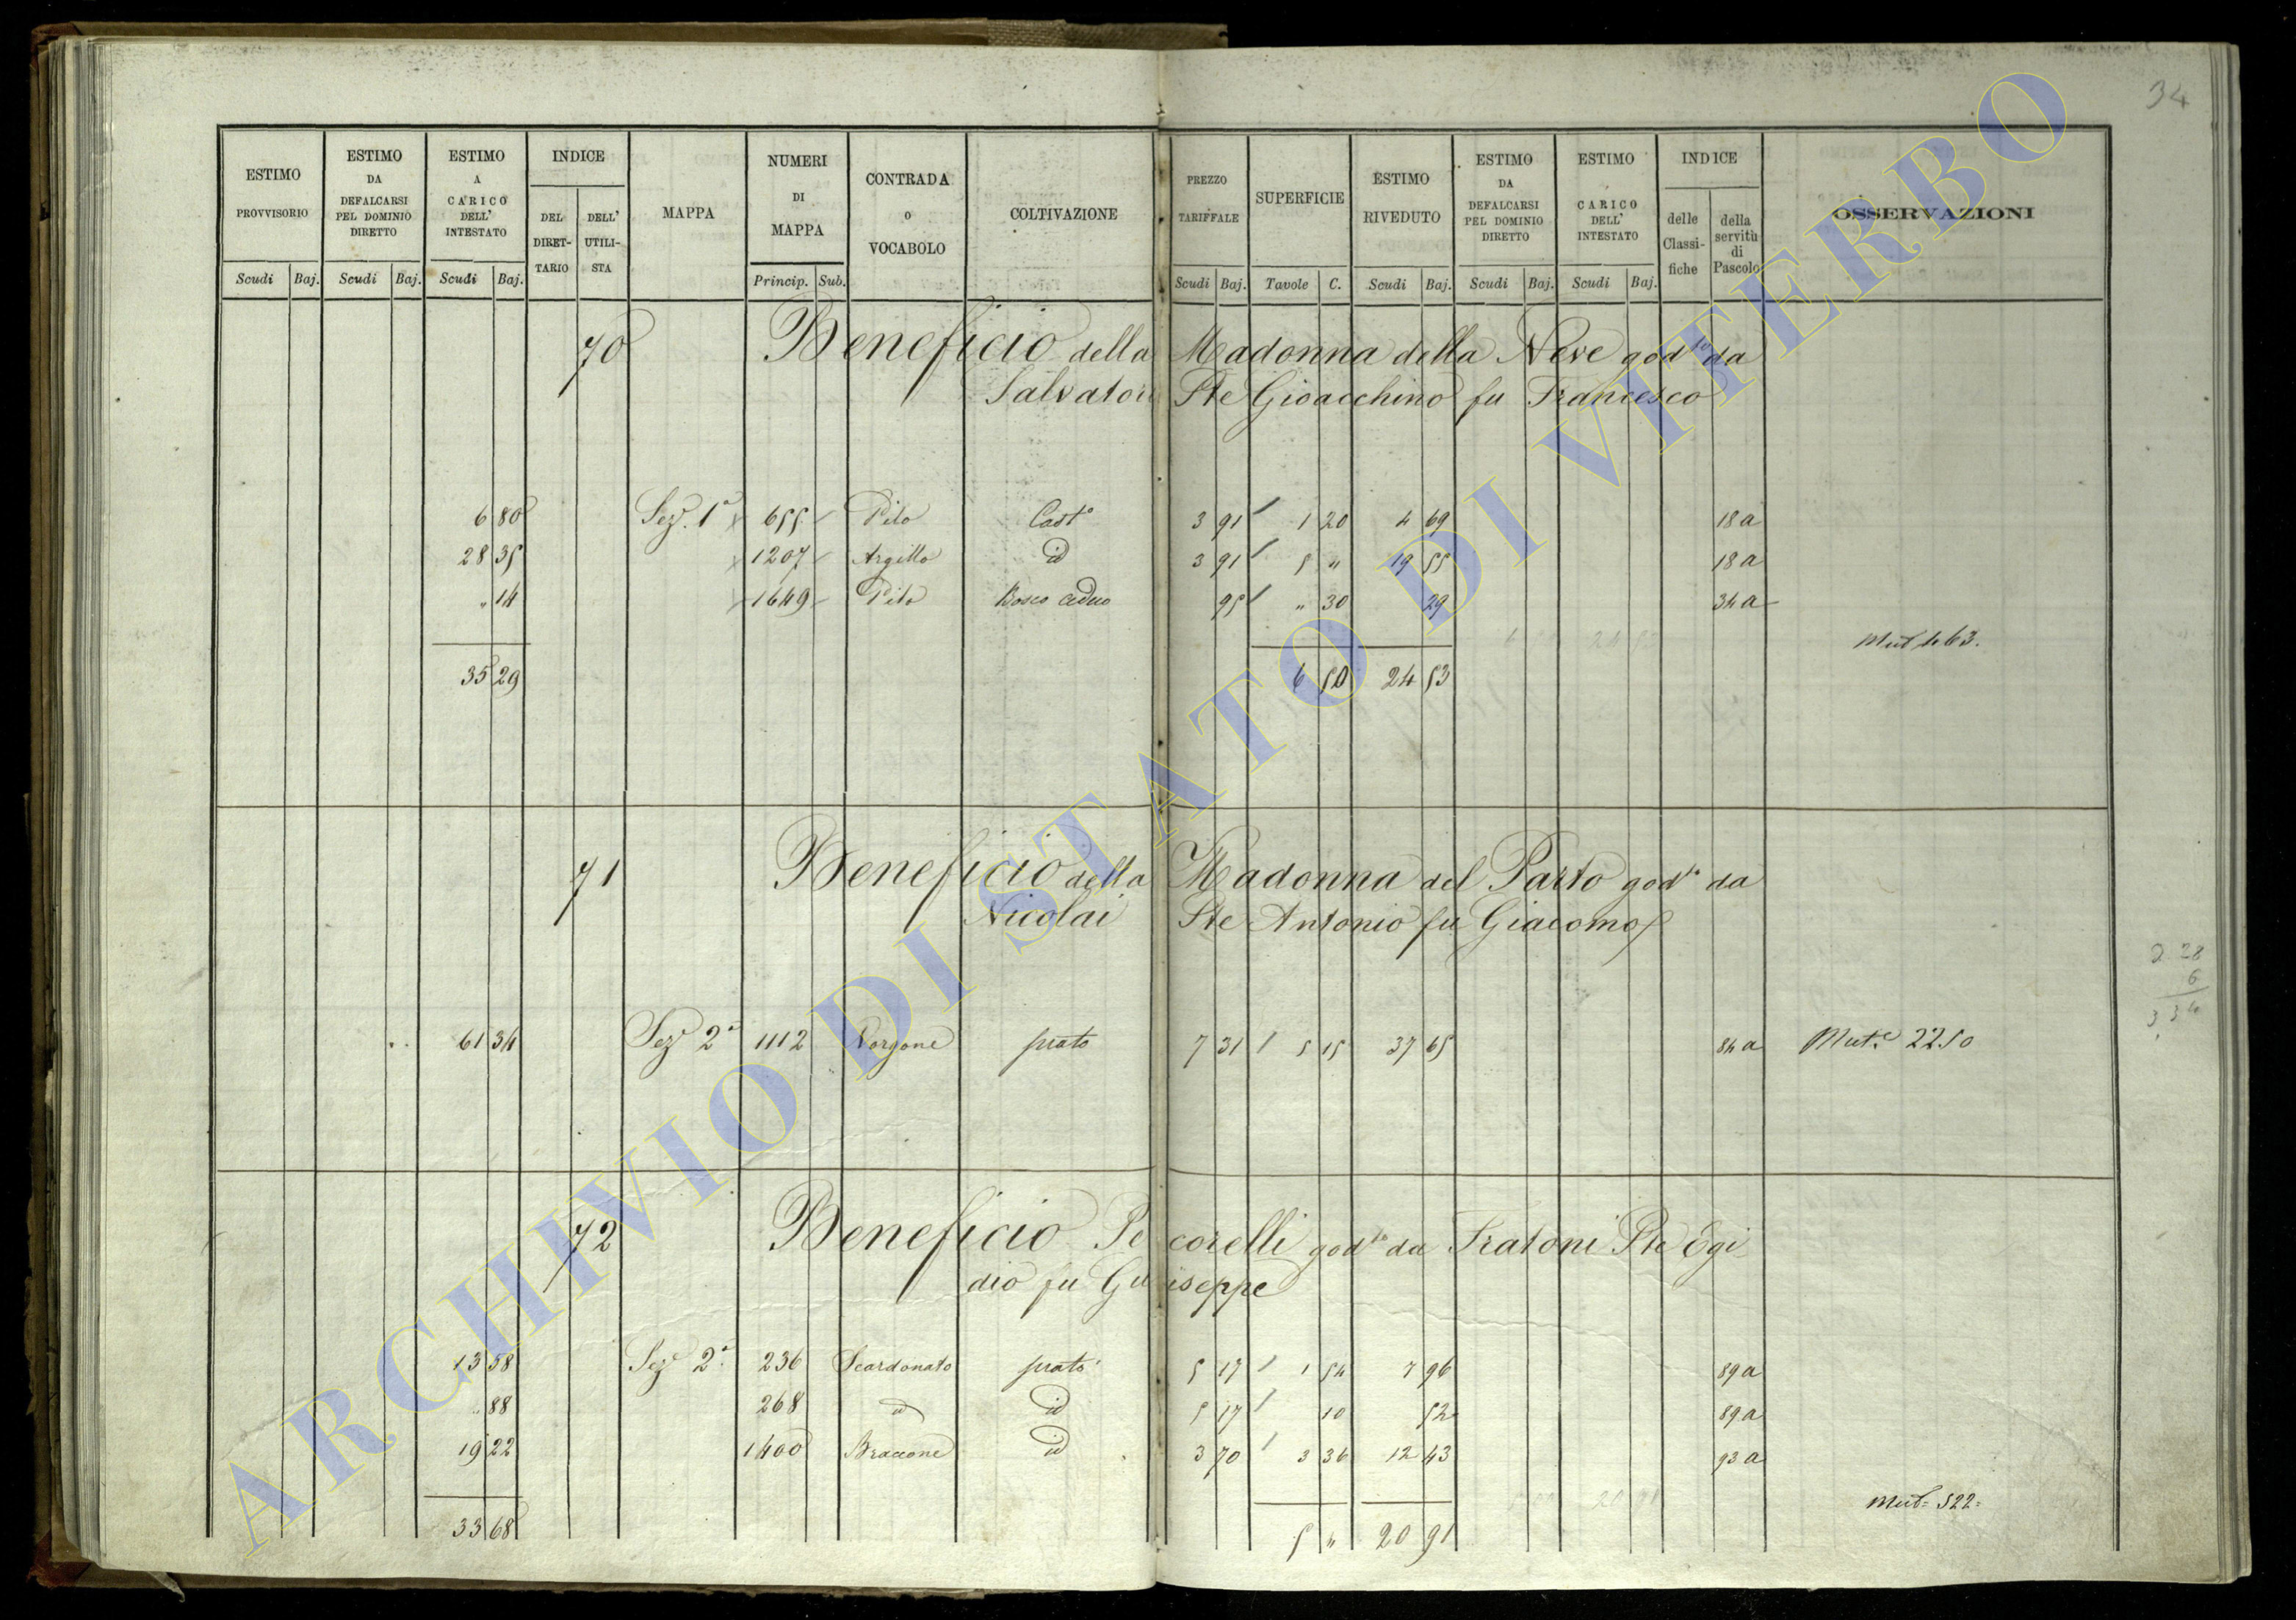 34
ESTIMO PROVVISORIO Scudi Baj.
ESTIMO DA DEFALCARSI PEL DOMINIO DIRETTO Scudi Baj.
ESTIMO A CARICO DELL' INTESTATO Scudi Baj.
INDICE DEL DIRETTARIO DELL' UTILISTA
MAPPA
NUMERI DI MAPPA Princip. Sub.
CONTRADA O VOCABOLO
COLTIVAZIONE
PREZZO TARIFFALE Scudi Baj.
SUPERFICIE Tavole C.
ESTIMO RIVEDUTO Scudi Baj.
ESTIMO DA DEFALCARSI PEL DOMINIO DIRETTO Scudi Baj.
ESTIMO A CARICO DELL' INTESTATO Scudi Baj.
INDICE delle Classifiche della servitù di Pascolo
OSSERVAZIONI
70 Beneficio della Madonna della Neve god.to da
Salvatori Pte Gioacchino fu Francesco
6 80 Sez. 1a 655 Pilo Cast.o 3 91 1 20 4 69 18 a
28 35 1207 Argillo id 3 91 5 " 19 55 18 a
" 14 1649 Pilo Bosco ceduo 95 " 30 29 34 a
Mut 463.
35 29 6 50 24 53
71 Beneficio della Madonna del Parto god.to da
Nicolai Pte Antonio fu Giacomo
2 28
6
3 34
61 34 Sez. 2a 1112 Norgone prato 7 31 5 15 37 65 84 a Mut.e 2250
72 Beneficio Pecorelli god.to da Fratoni Pte Egi
dio fu Giuseppe
13 58 Sez. 2a 236 Scardonato prato 5 17 1 54 7 96 89 a
" 88 268 id id 5 17 10 52 89 a
19 22 1400 Braccone id 3 70 3 36 12 43 93 a
Mut= 522=
33 68 5 " 20 91
ARCHIVIO DI STATO DI VITERBO